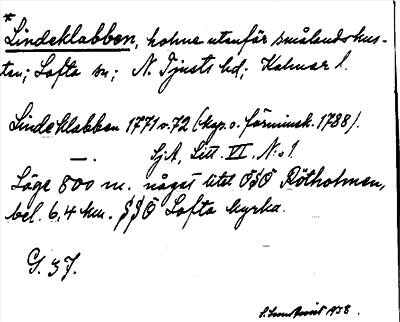 *
Lindeklabben, holme utanför smålandskus-
ten; Lofta sn; N. Tjusts hd; Kalmar l.
Lindeklabben 1771 o. 72 (kop. o. förminsk. 1788).
—. SjA, Litt. VI. N:o 1.
Läge 800 m. något litet ÖSÖ Rötholmen,
bel. 6,4 km. SSÖ Lofta kyrka.
G. 37.
1938.